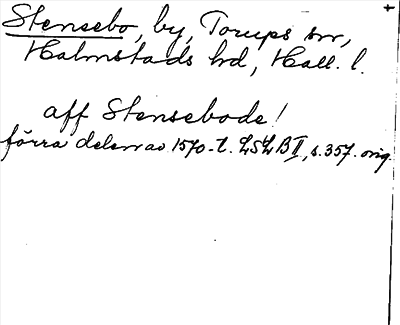 Stensebo, by, Torups sn,
Halmstads hd, Hall. l.
aff Stensebode!
förra delen av 1570-t. LSLB II, s. 357. orig.